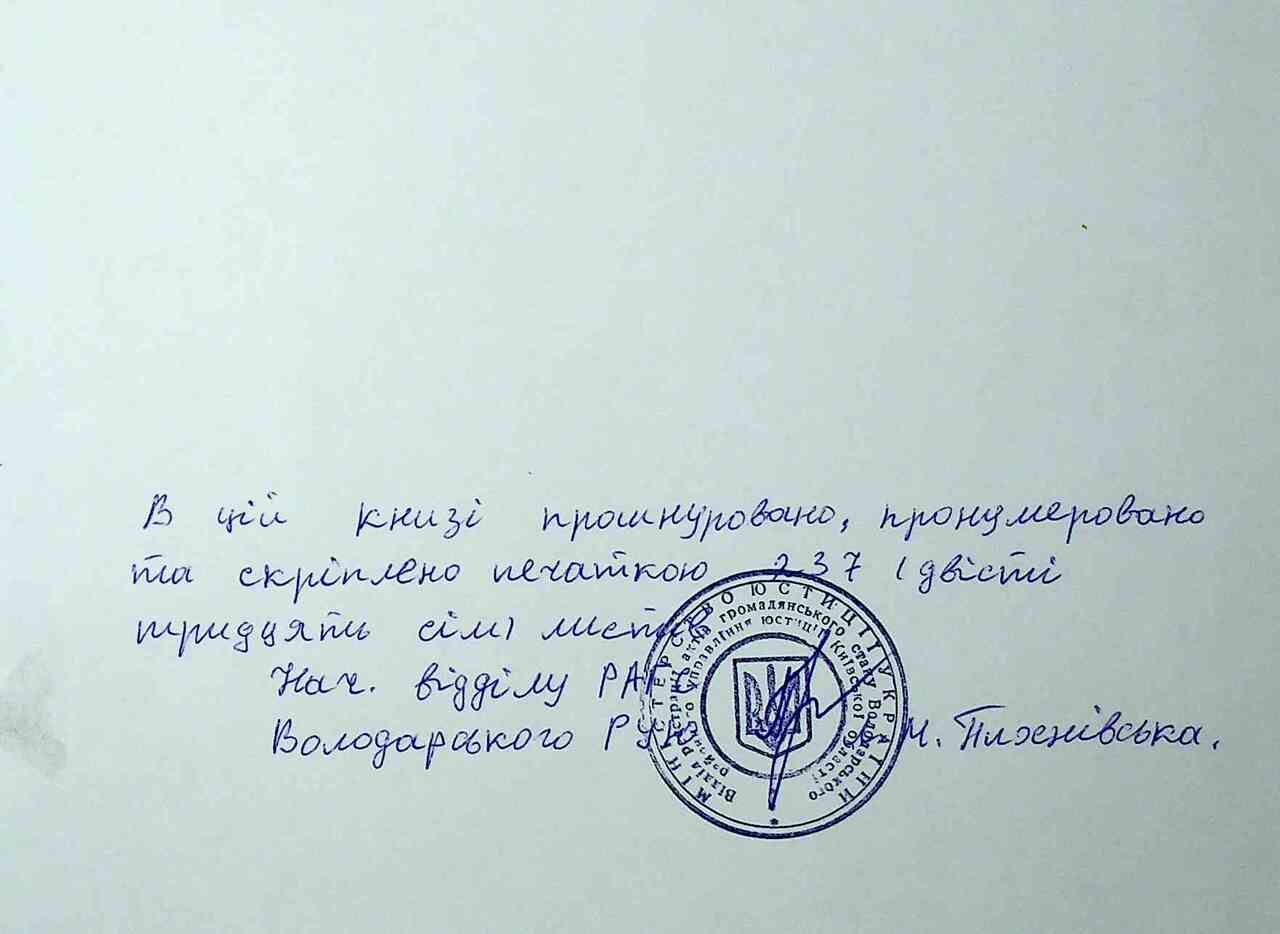 В цій книзі прошнуровано, пронумеровано
та скріплено печаткою 237 (двісті
тридцять сім) листів
Нач. відділу РАГС
Володарського РУЮ Н.
МІНІСТЕРСТВО ЮСТИЦІЇ УКРАЇНИ
Відділ реєстрації актів громадянського стану Володарського
районного управління юстиції Київської області